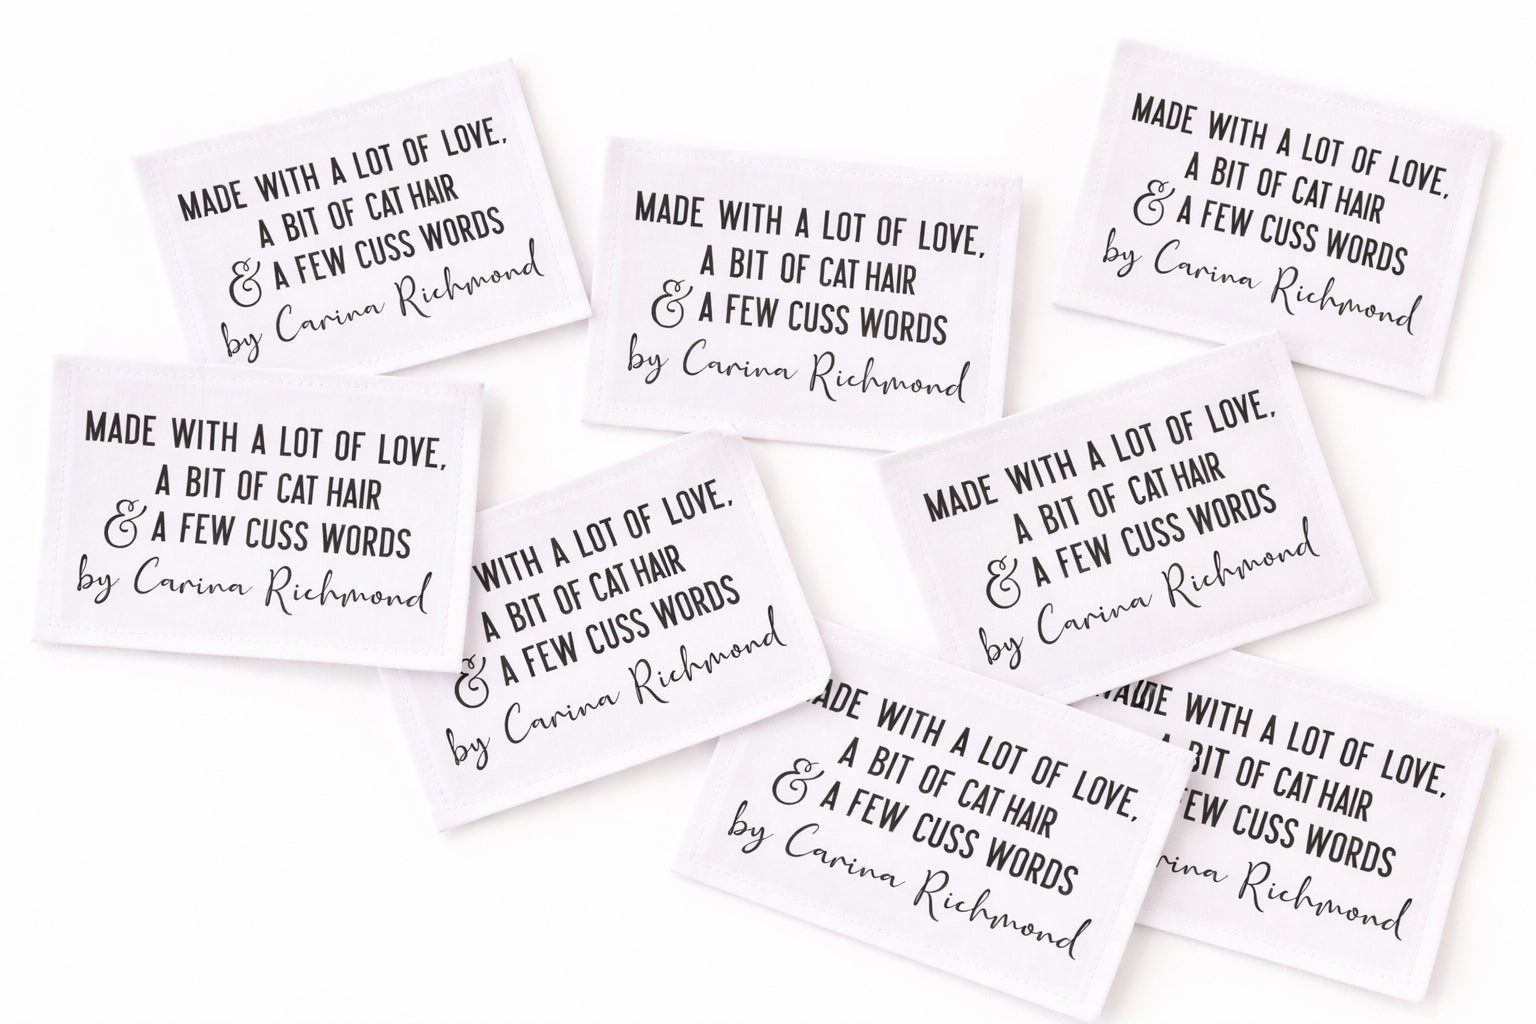 MADE WITH A LOT OF LOVE,
A BIT OF CAT HAIR
& A FEW CUSS WORDS
by Carina Richmond
MADE WITH A LOT OF LOVE,
A BIT OF CAT HAIR
& A FEW CUSS WORDS
by Carina Richmond
MADE WITH A LOT OF LOVE,
A BIT OF CAT HAIR
& A FEW CUSS WORDS
by Carina Richmond
MADE WITH A LOT OF LOVE,
A BIT OF CAT HAIR
& A FEW CUSS WORDS
by Carina Richmond
WITH A LOT OF LOVE,
A BIT OF CAT HAIR
& A FEW CUSS WORDS
by Carina Richmond
MADE WITH A LOT OF LOVE,
A BIT OF CAT HAIR
& A FEW CUSS WORDS
by Carina Richmond
MADE WITH A LOT OF LOVE,
A BIT OF CAT HAIR
& A FEW CUSS WORDS
by Carina Richmond
WITH A LOT OF LOVE,
BIT OF CAT HAIR
CUSS WORDS
Richmond